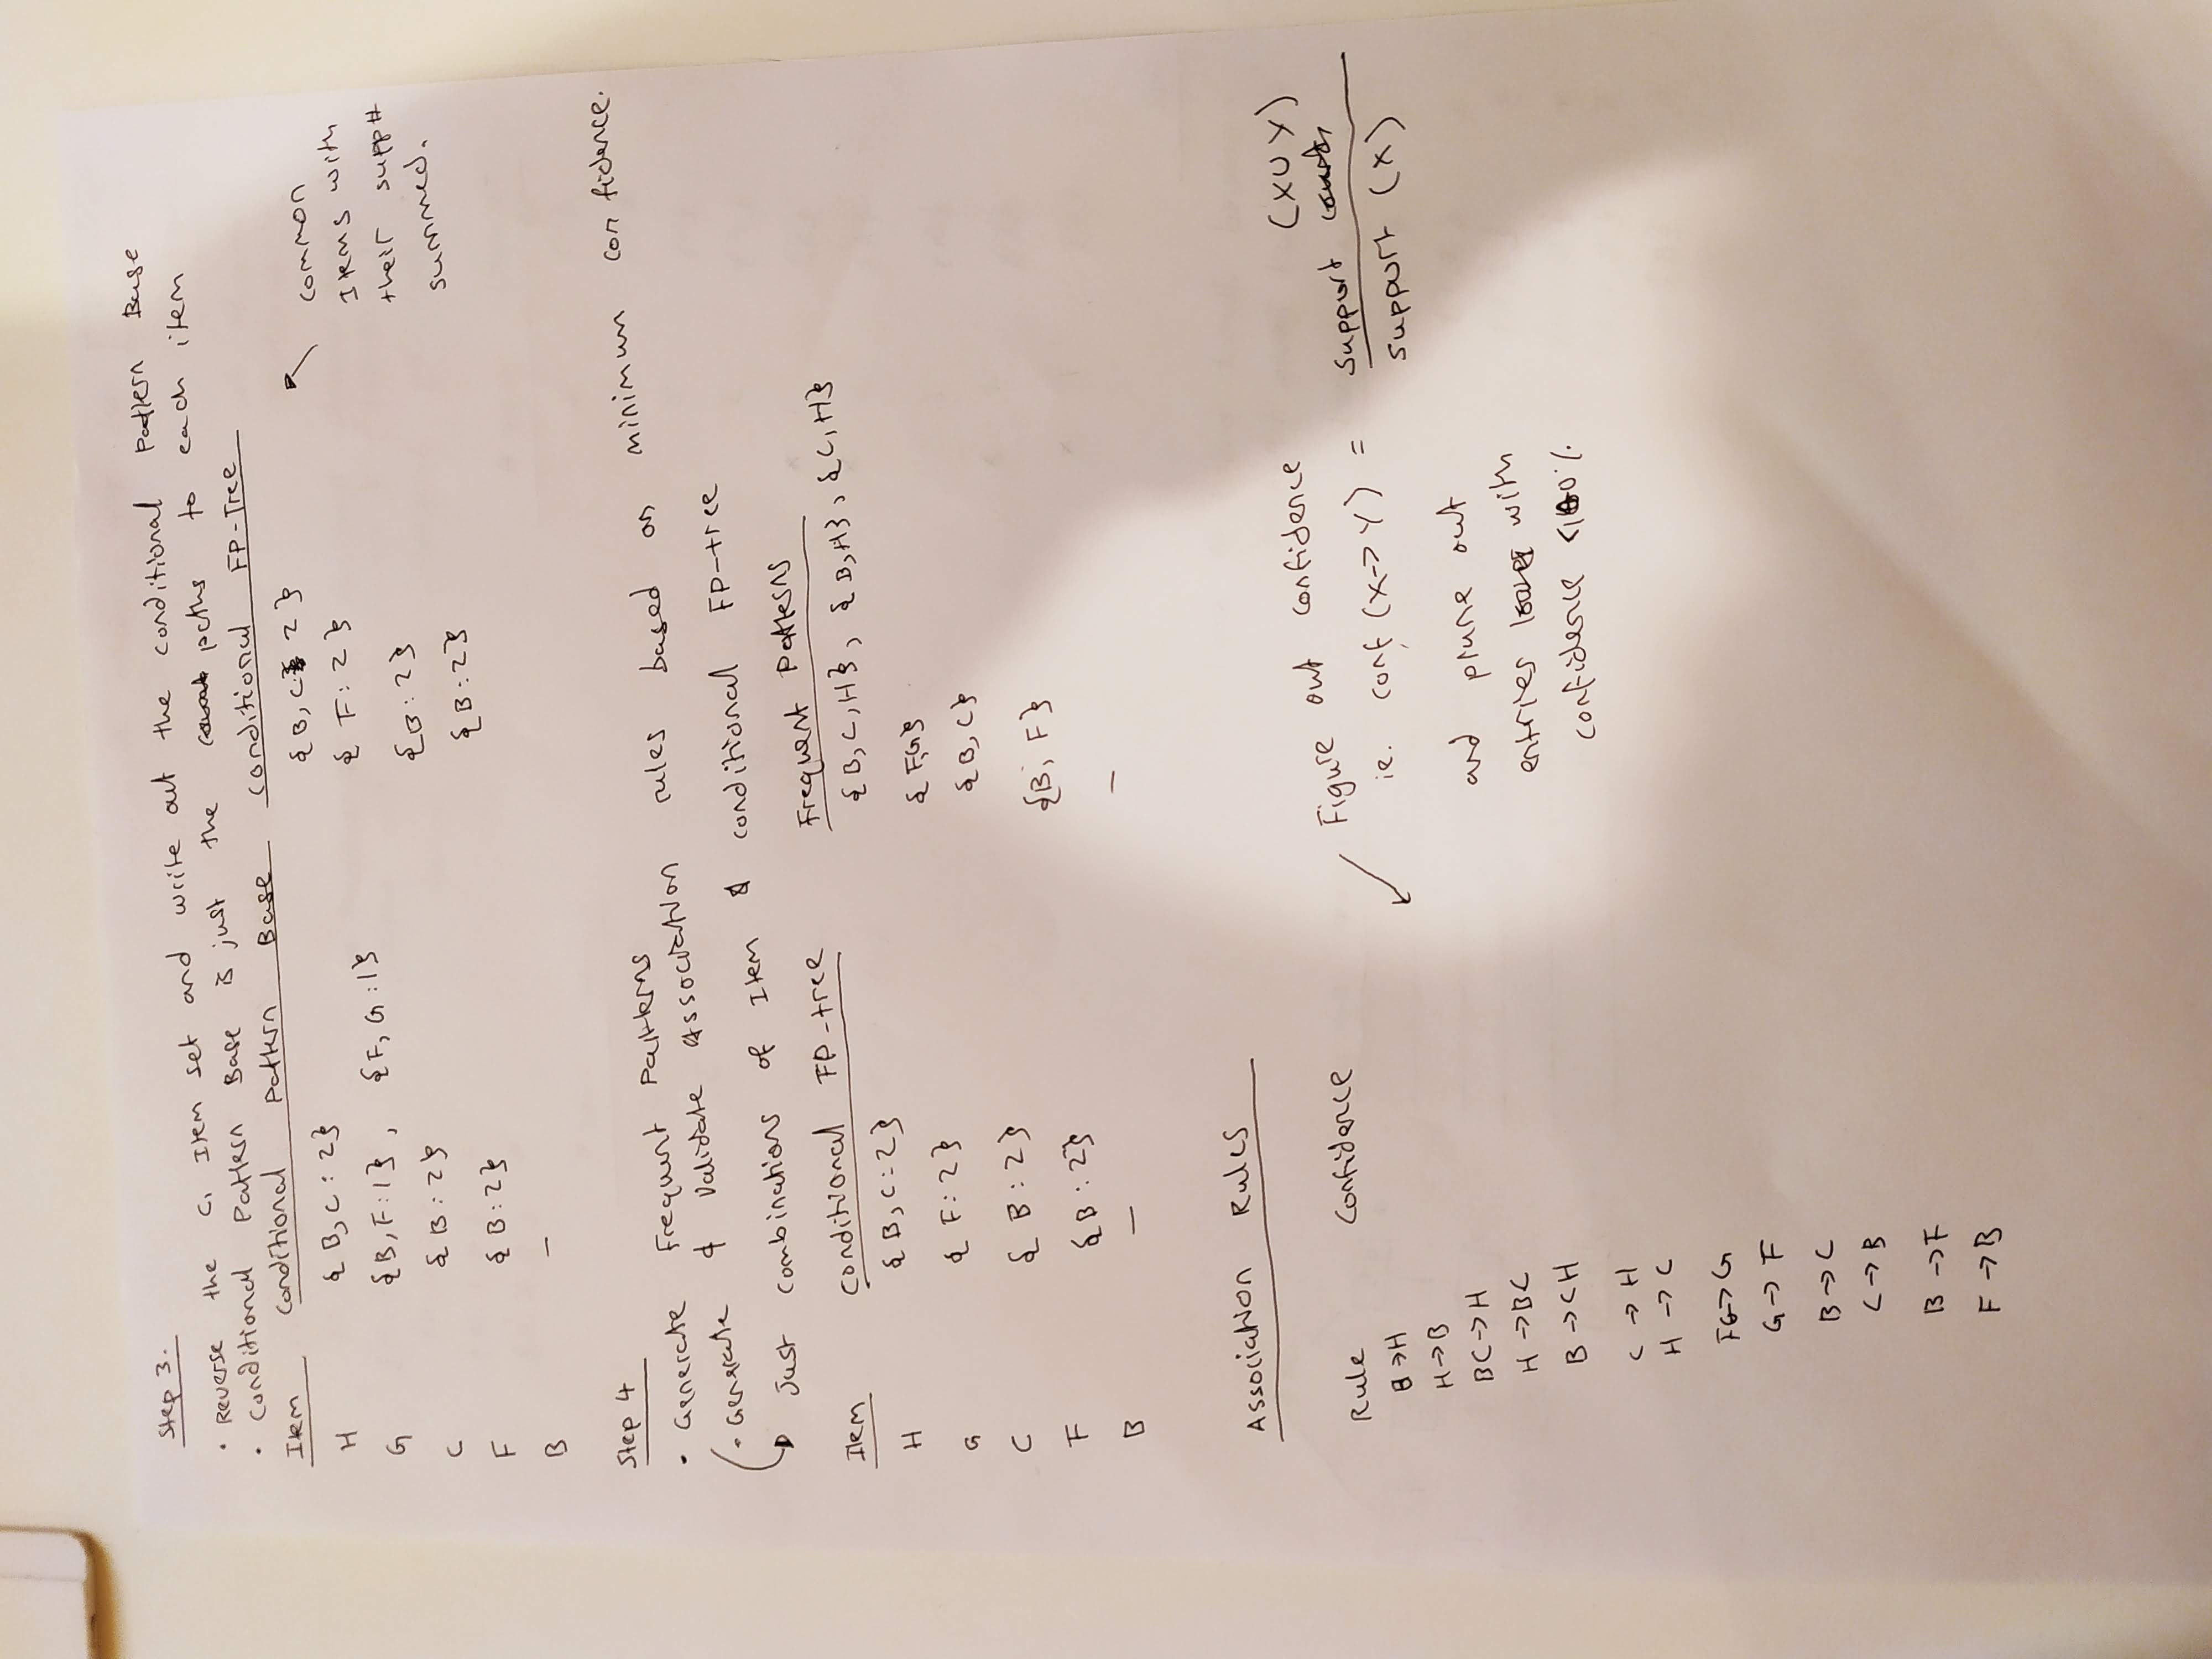 Step 3.
• Reverse the C1 Item set and write out the conditional Pattern Base
• Conditional Pattern Base is just the paths to each item
Item Conditional Pattern Base Conditional FP-Tree
H {B,C:2} {B,C:2}
G {B,F:1}, {F,G:1} {F:2}
C {B:2} {B:2}
F {B:2} {B:2}
B —
common
Items with
their support
summed.
Step 4
• Generate Frequent Patterns
• Generate & Validate Association rules based on minimum confidence.
Just combinations of Item & conditional FP-tree
Item Conditional FP-tree Frequent Patterns
H {B,C:2} {B,C,H}, {B,H}, {C,H}
G {F:2} {F,G}
C {B:2} {B,C}
F {B:2} {B,F}
B — —
Association Rules
Rule Confidence
B→H
H→B
BC→H
H→BC
B→CH
C→H
H→C
F→G
G→F
B→C
C→B
B→F
F→B
Figure out confidence
ie. conf (X→Y) = support (X∪Y)
support (X)
and prune out
entries with
confidence <100%